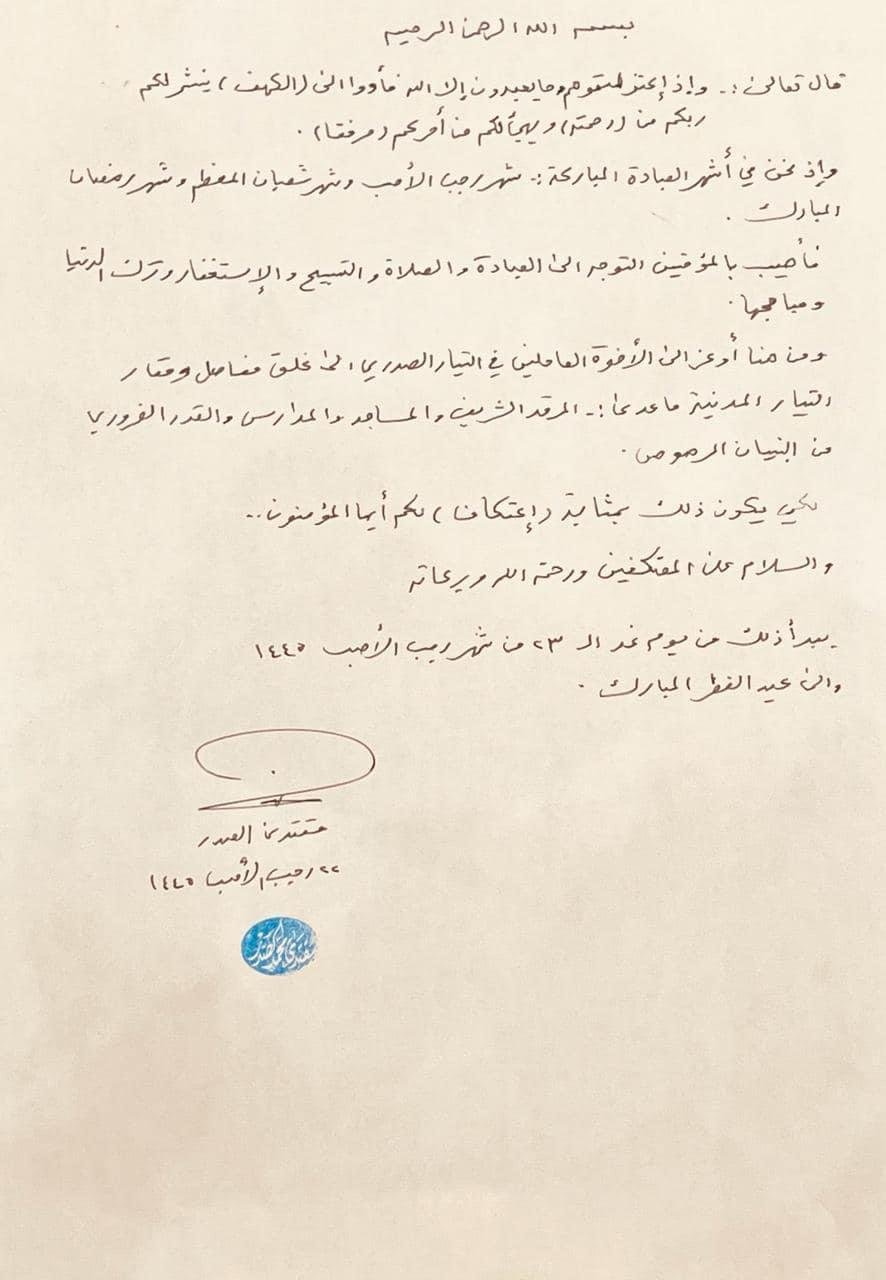 بسم الله الرحمن الرحيم
قال تعالى :ـ وإذ إعتزلتموهم وما يعبدون إلا الله فأووا الى (الكهف) ينشر لكم
ربكم من (رحمته) ويهيألكم من أمركم (مرفقا) .
وإذ نحن في أشهر العبادة المباركة :ـ شهر رجب الأصب وشهر شعبان المعظم وشهر رمضان
المبارك .
فأهيب بالمؤمنين التوجه الى العبادة والصلاة والتسبيح والإستغفار وترك الدنيا
ومباهجها .
ومن هنا أوعز الى الأخوة العاملين في التيار الصدري الى غلق مفاصل ومقار
التيار المدنية ما عدى :ـ المرقد الشريف والمساجد والمدارس والقدر الضروري
من البنيان المرصوص .
لكي يكون ذلك بمثابة (إعتكاف) لكم أيها المؤمنون ..
والسلام على المعتكفين ورحمة الله وبركاته
يبدأ ذلك من يوم غد الـ ٢٣ من شهر رجب الأصب ١٤٤٥
والى عيد الفطر المبارك .
مقتدى الصدر
٢٢ رجب الأصب ١٤٤٥